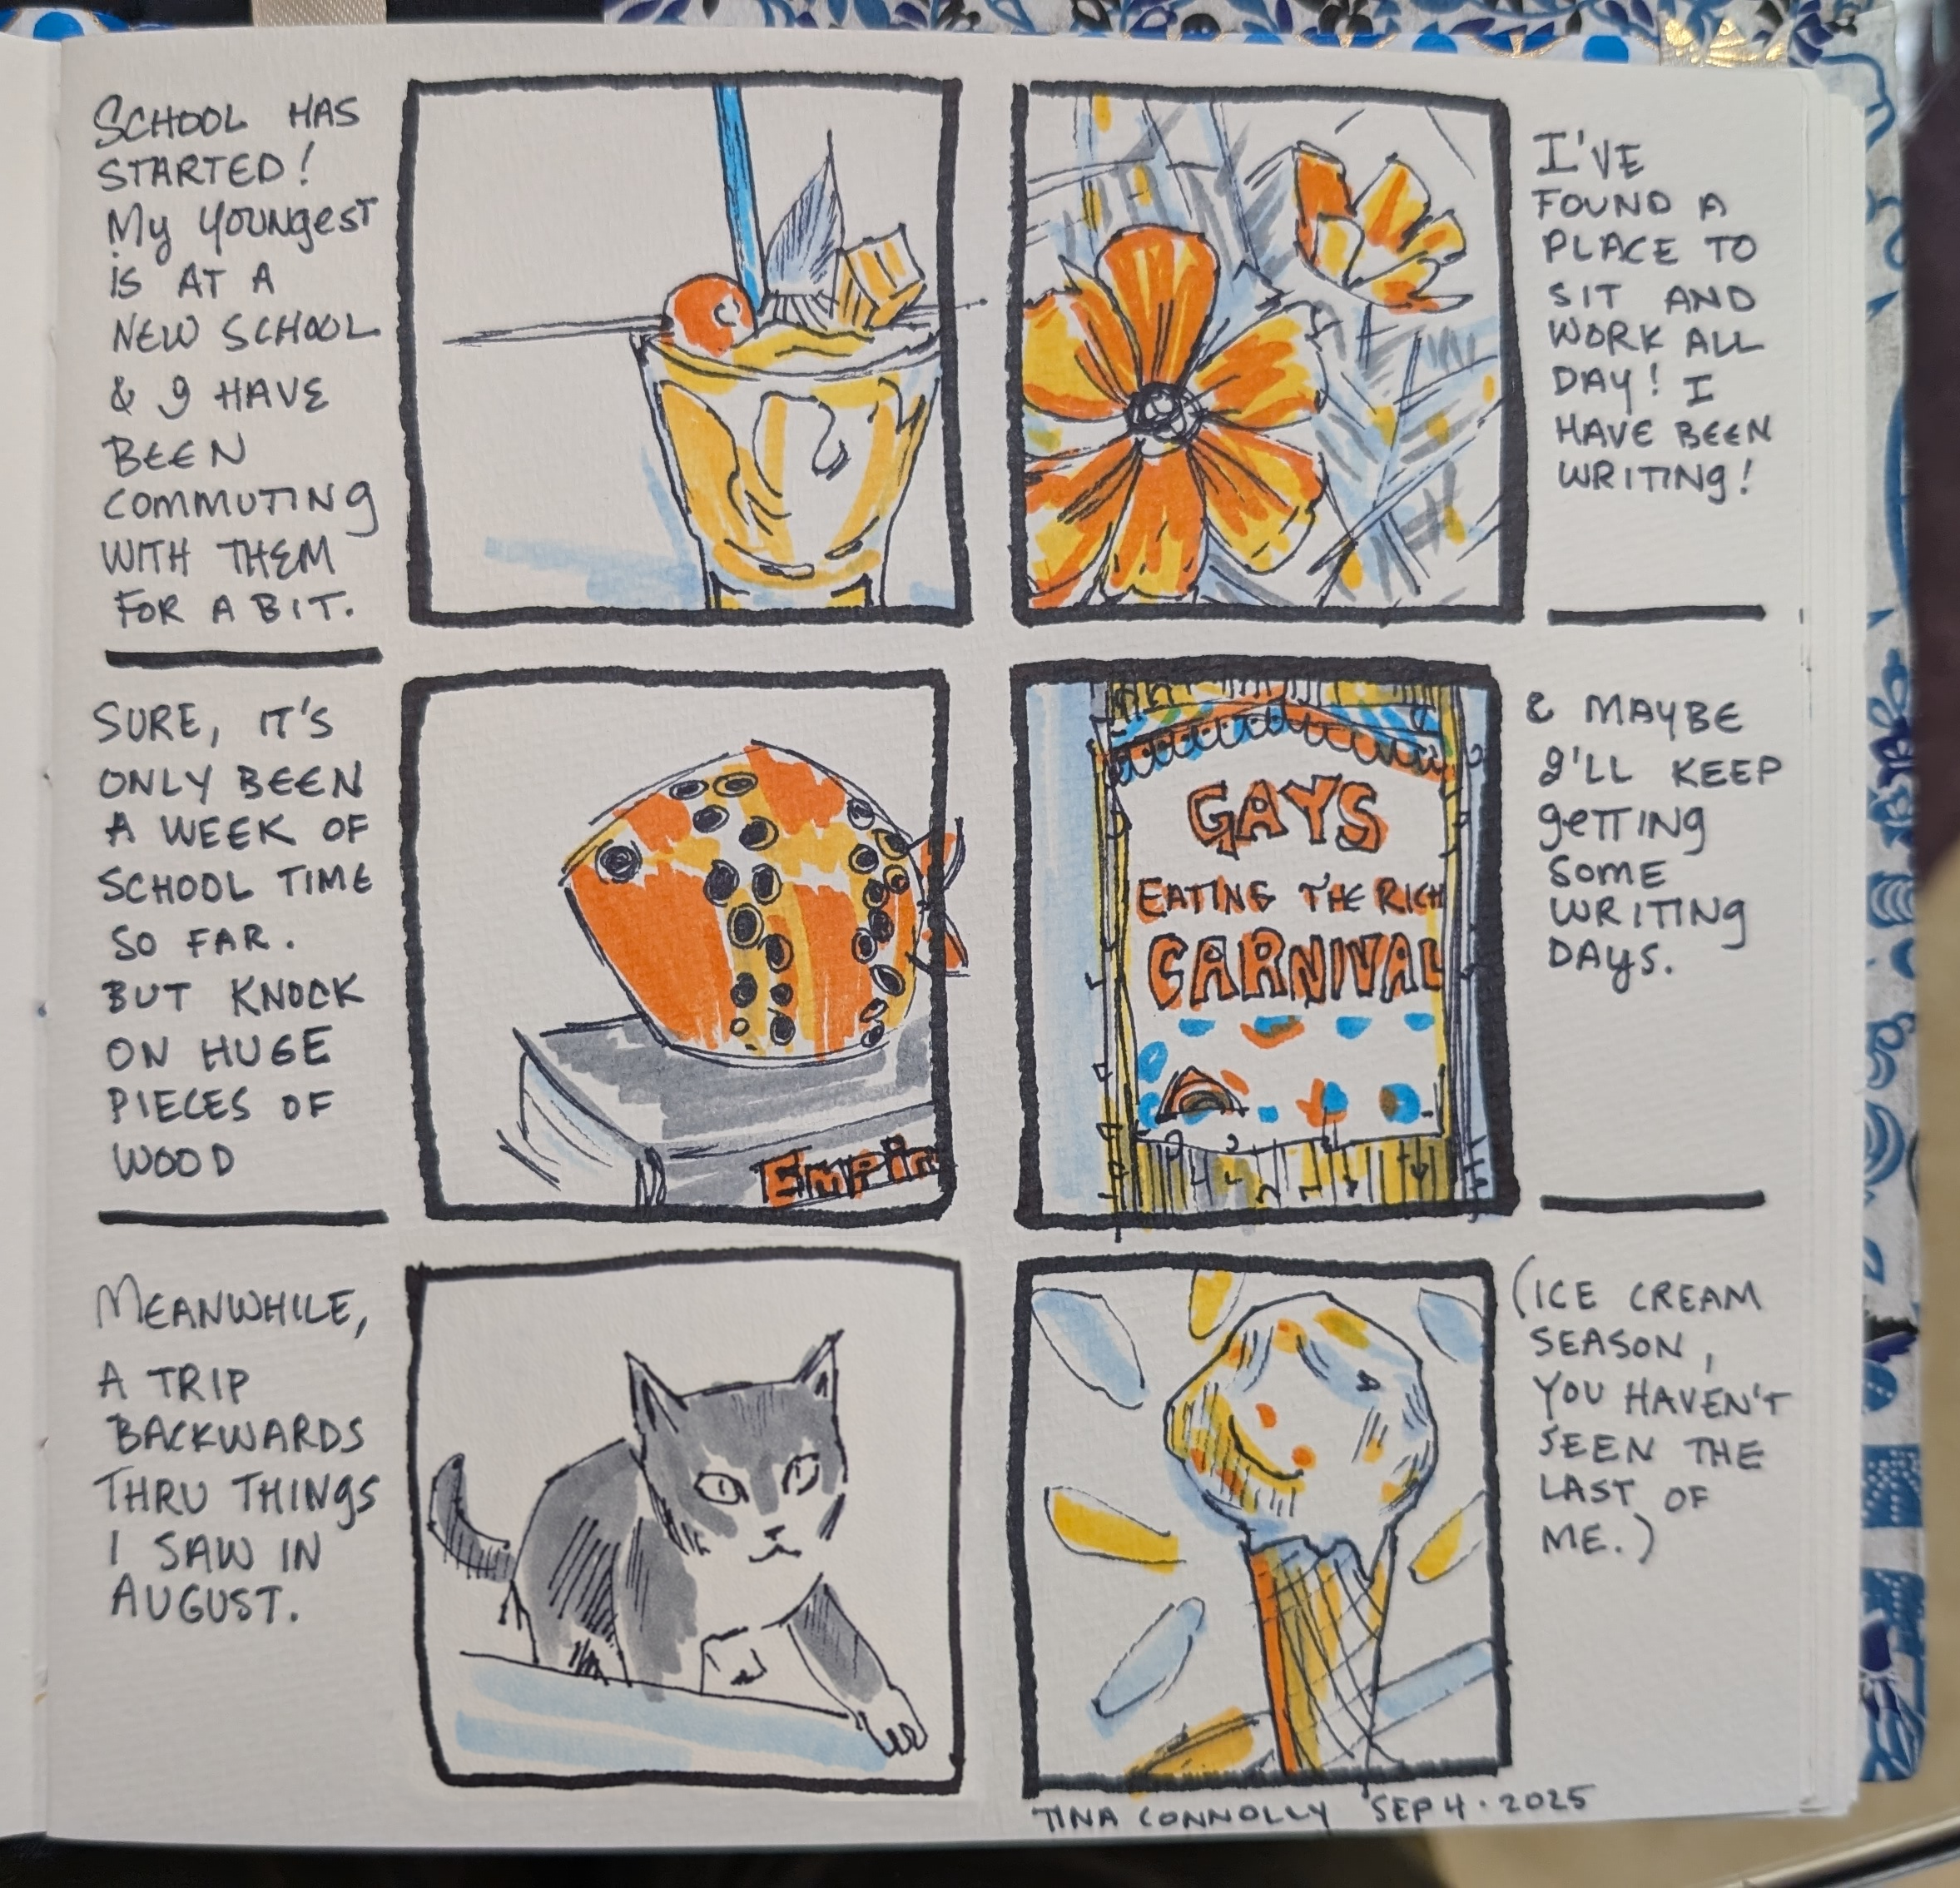 SCHOOL HAS
STARTED!
My YOUNgEST
IS AT A
NEW SCHOOL
& I HAVE
BEEN
COMMUTINg
WITH THEM
FOR A BIT.
I'VE
FOUND A
PLACE TO
SIT AND
WORK ALL
DAY! I
HAVE BEEN
WRITINg!
SURE, IT'S
ONLY BEEN
A WEEK OF
SCHOOL TIME
SO FAR.
BUT KNOCK
ON HUGE
PIECES OF
WOOD
Empir
GAYS
EATING THE RICH
CARNIVAL
& MAYBE
I'LL KEEP
gETTINg
SOME
WRITINg
DAYS.
MEANWHILE,
A TRIP
BACKWARDS
THRU THINgS
I SAW IN
AUGUST.
(ICE CREAM
SEASON,
YOU HAVEN'T
SEEN THE
LAST OF
ME.)
TINA CONNOLLY SEP 4 · 2025